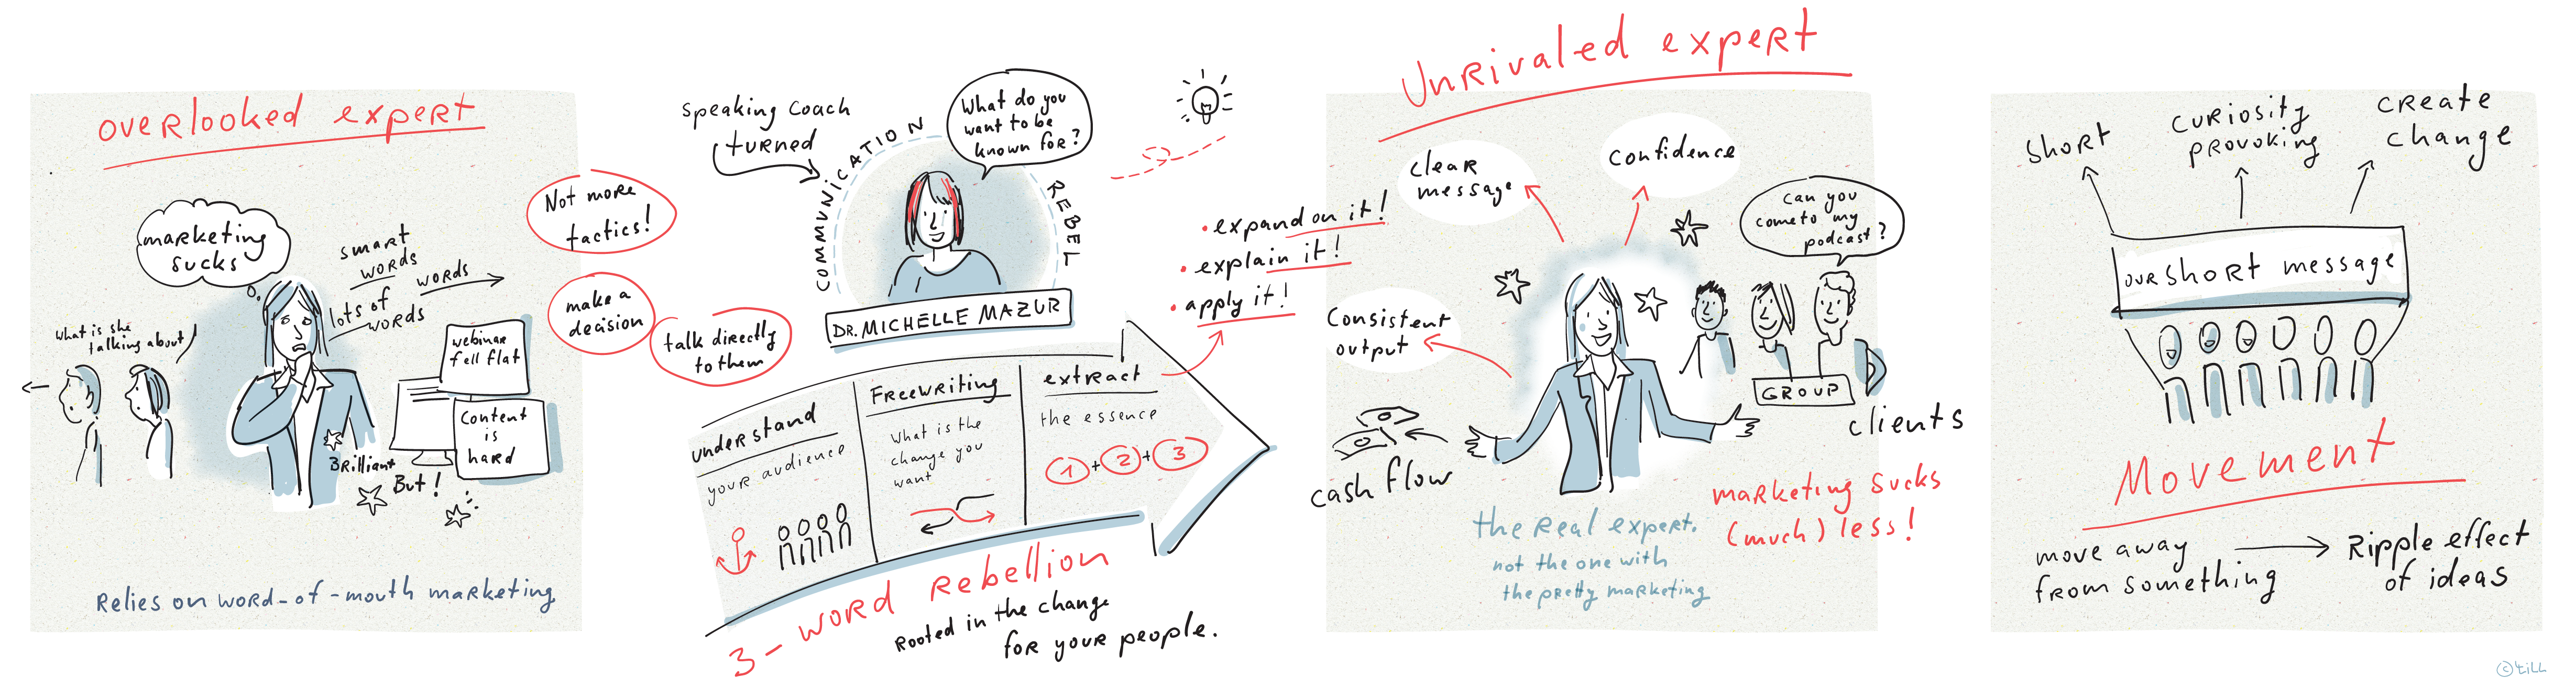 overlooked expert
marketing
sucks
smart
words
lots of
words
words
What is she
talking about
webinar
fell flat
Content
is
hard
Brilliant
But!
Relies on word-of-mouth marketing
Not more
tactics!
make a
decision
talk directly
to them
speaking coach
turned
COMMUNICATION REBEL
What do you
want to be
known for?
DR. MICHELLE MAZUR
understand
your audience
Freewriting
What is the
change you
want
extract
the essence
1 + 2 + 3
• expand on it!
• explain it!
• apply it!
3-word Rebellion
Rooted in the change
for your people.
Unrivaled expert
clear
message
confidence
Consistent
output
can you
come to my
podcast?
GROUP
clients
cash flow
marketing sucks
(much) less!
the real expert.
not the one with
the pretty marketing
short
curiosity
provoking
create
change
our short message
Movement
move away
from something
Ripple effect
of ideas
© till